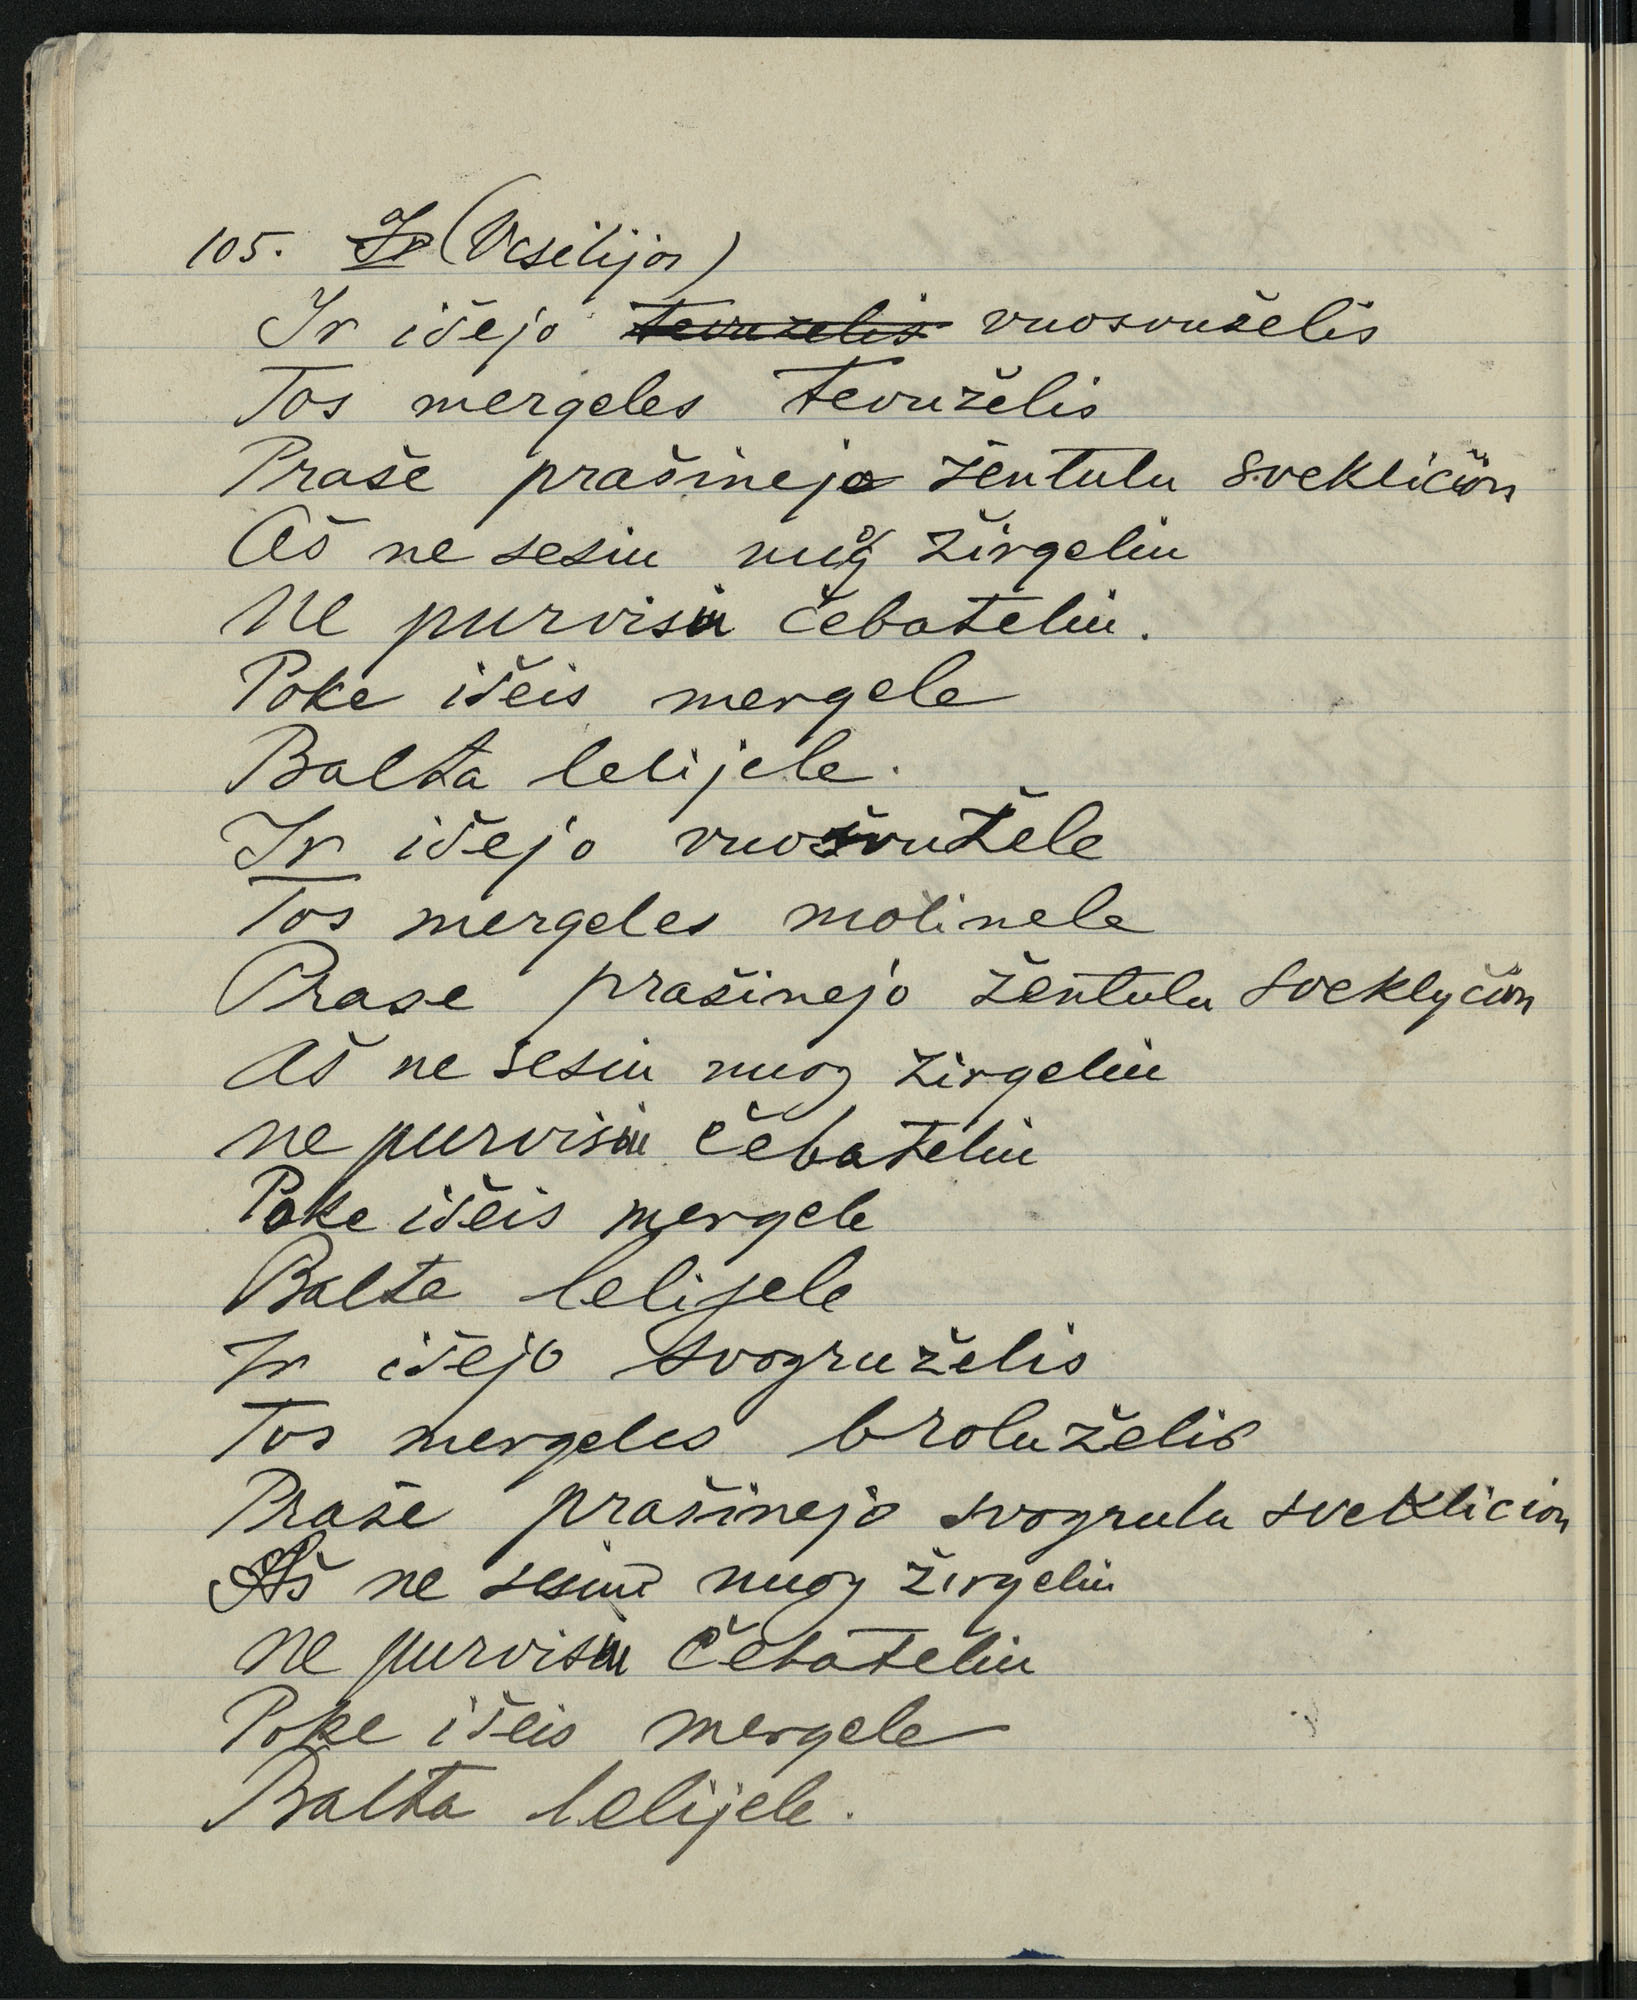 105. Ir (Veselijos)
Ir išejo tevuzelis vuosvuželis
Tos mergeles tevuželis
Praše prašinejo žentulu svekličion
Aš ne sesiu nuog žirgeliu
Ne purvisiu čebateliu.
Poke išeis mergele
Balta lelijele.
Ir išejo vuošvužele
Tos mergeles motinele
Prase prašinejo žentulu sveklyčion
Aš ne sesiu nuog žirgeliu
ne purvisiu čebateliu
Poke išeis mergele
Balta lelijele
Ir išejo svogruželis
Tos mergeles broluželis
Praše prašinejo svogrulu sveklicion
Aš ne sesiu nuog žirgeliu
Ne purvisiu čebateliu
Poke išeis mergele
Balta lelijele.